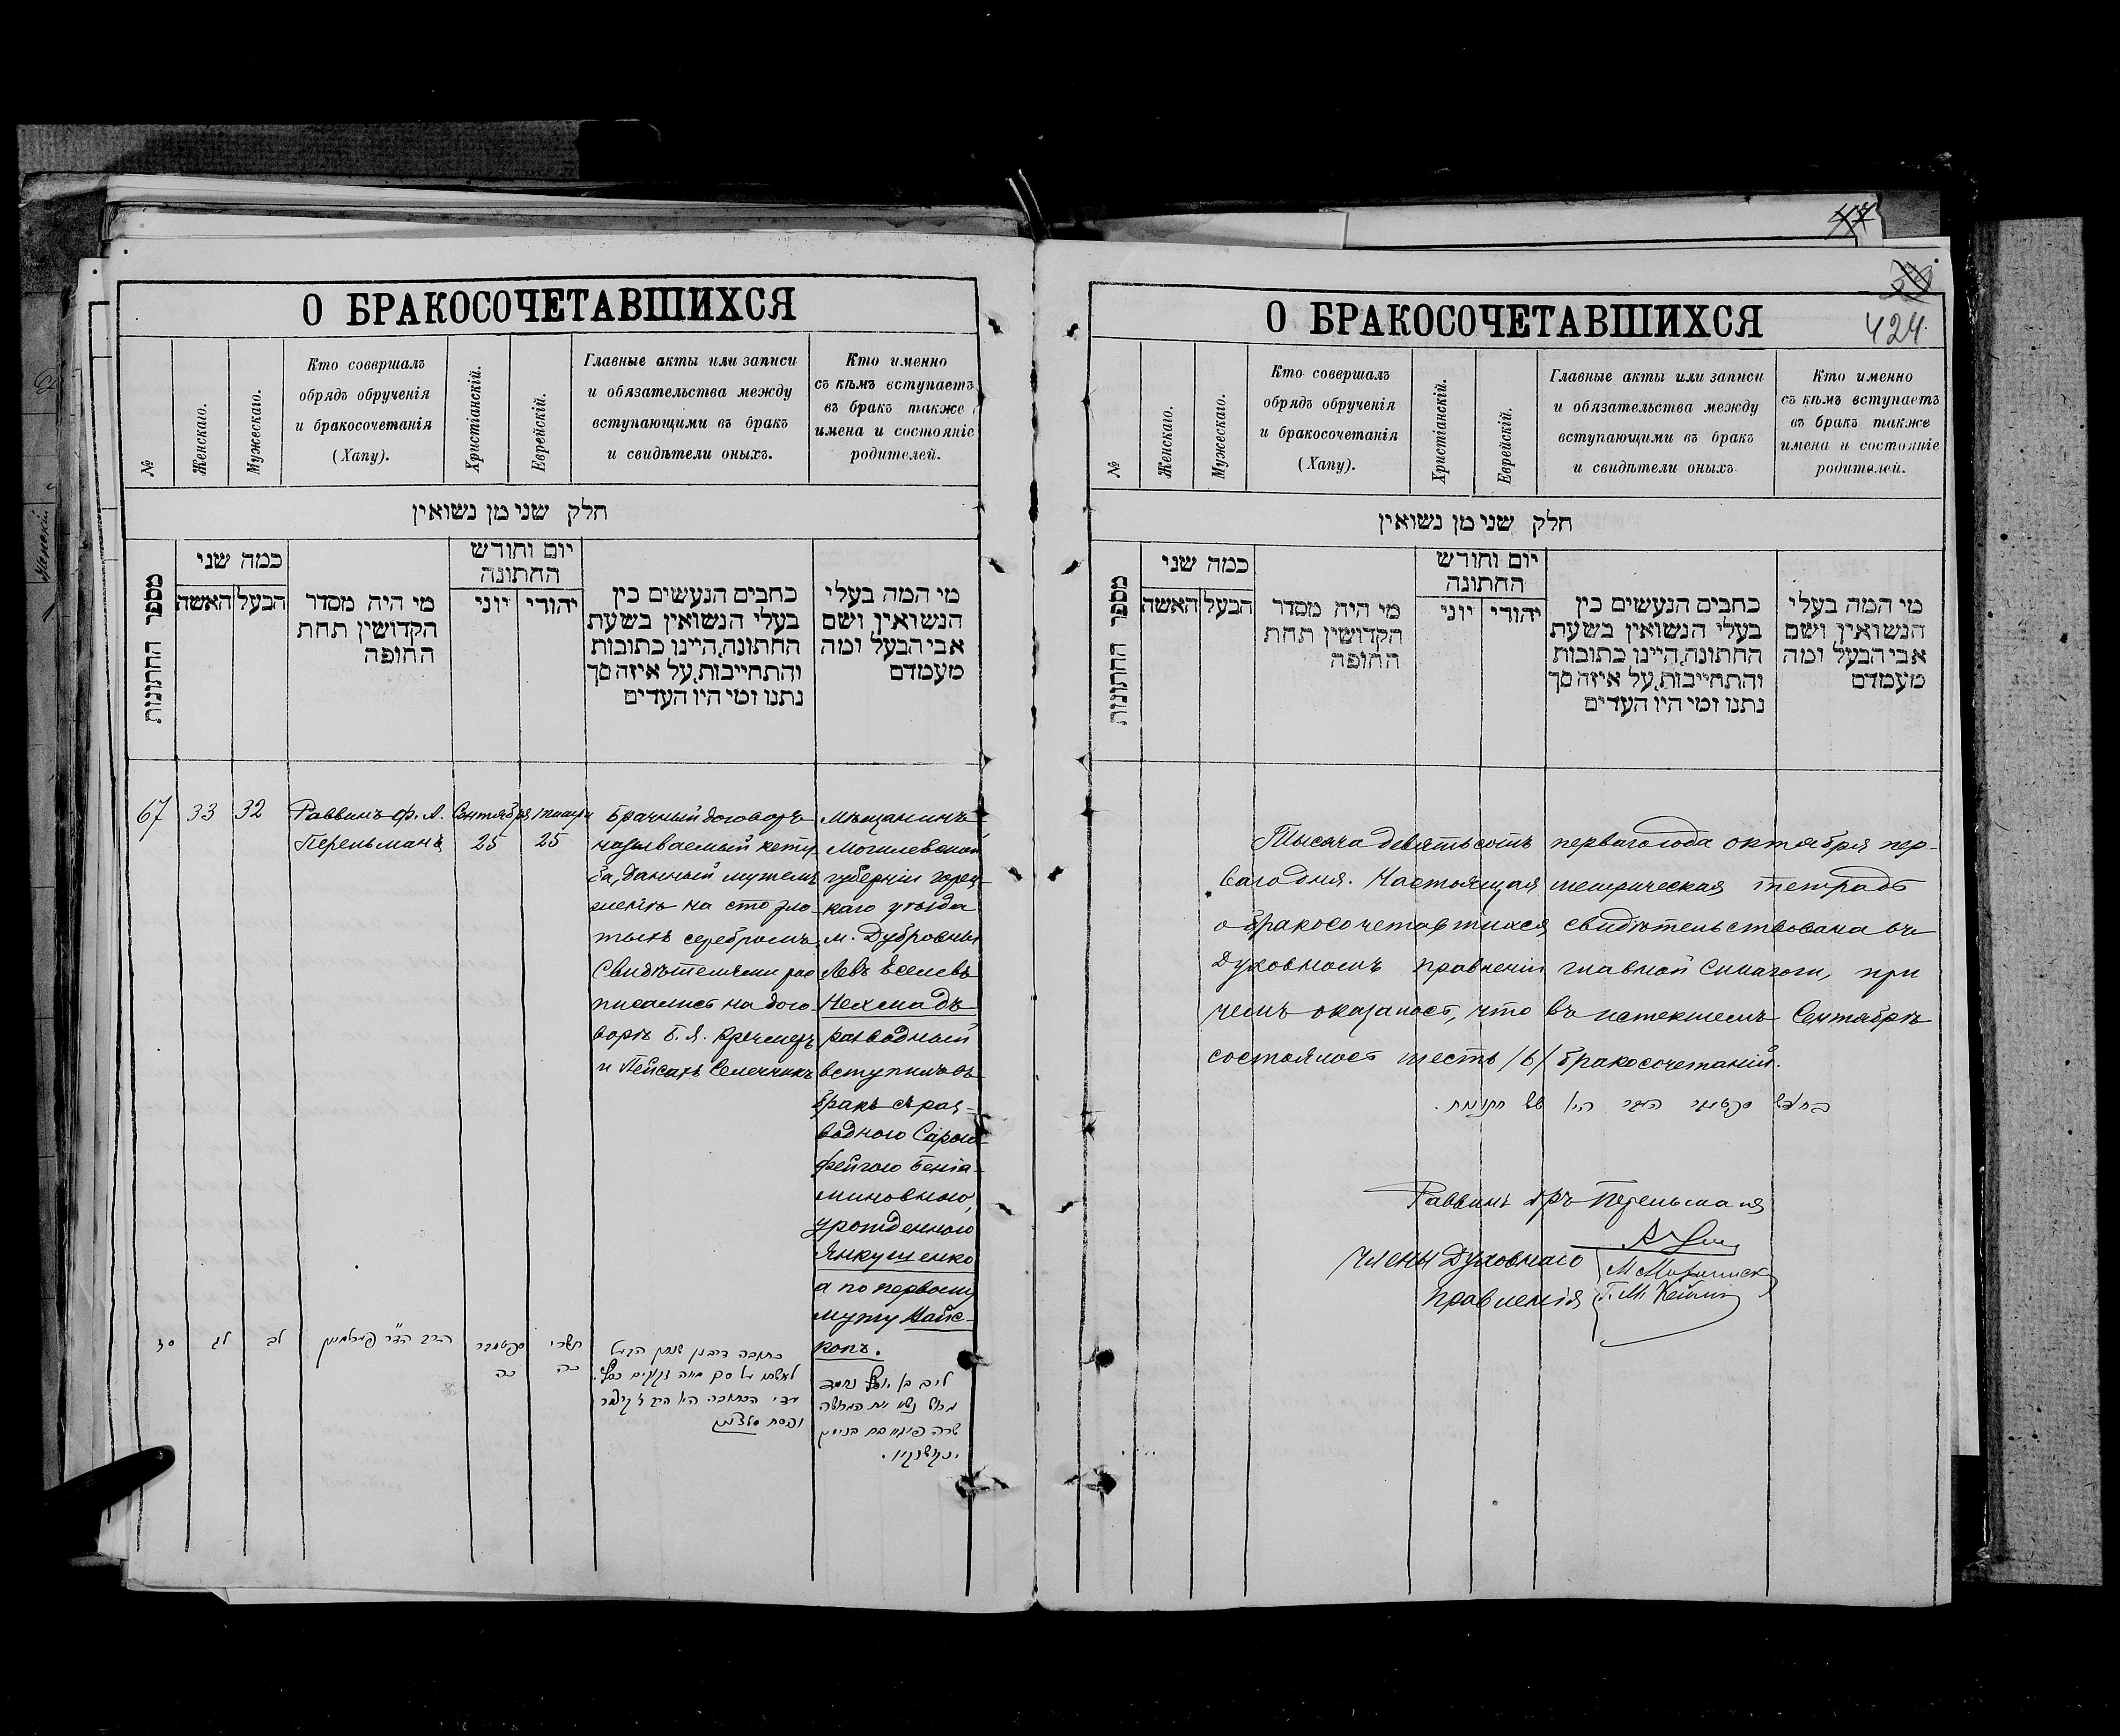 47
39
424
О БРАКОСОЧЕТАВШИХСЯ
№
Женскаго.
Мужескаго.
Кто совершалъ
обрядъ обрученія
и бракосочетанія
(Хапу).
Христіанскій.
Еврейскій.
Главные акты или записи
и обязательства между
вступающими въ бракъ
и свидѣтели оныхъ.
Кто именно
съ кѣмъ вступаетъ
въ бракъ также
имена и состояніе
родителей.
חלק שני מן נשואין
מספר החתונות
כמה שני
האשה
הבעל
מי היה מסדר
הקדושין תחת
החופה
יום וחודש
החתונה
יוני
יהודי
כתבים הנעשים בין
בעלי הנשואין בשעת
החתונה,היינו כתובות
והתחייבות,על איזה סך
נתנו ומי היו העדים
מי המה בעלי
הנשואין ושם
אבי הבעל ומה
מעמדם
67
33
32
Раввинъ Ф. А.
Перельманъ
Сентября
25
тишри
25
Брачный договоръ
называемый кету-
ба, данный мужемъ
женѣ на сто зло-
тыхъ серебромъ.
Свидѣтелями рас
писались на дого-
ворѣ Б. Я. Кречмеръ
и Пейсахъ Селечникъ
Мѣщанинъ
Могилевской
губерніи горец-
каго уѣзда
м. Дубровны
Левъ Іоселевъ
Нехмадъ
разводный
вступилъ въ
бракъ съ раз-
водною Сарою
Фейгою Беніа-
миновною,
урожденною
Янкушенко
а по первому
мужу Найс-
копъ.
סז
לג
לב
הרב הד״ר פערלמאן
סקטמבר
כה
תשרי
כה
О БРАКОСОЧЕТАВШИХСЯ
№
Женскаго.
Мужескаго.
Кто совершалъ
обрядъ обрученія
и бракосочетанія
(Хапу).
Христіанскій.
Еврейскій.
Главные акты или записи
и обязательства между
вступающими въ бракъ
и свидѣтели оныхъ
Кто именно
съ кѣмъ вступаетъ
въ бракъ также
имена и состояніе
родителей.
חלק שני מן נשואין
מספר החתונות
כמה שני
האשה
הבעל
מי היה מסדר
הקדושין תחת
החופה
יום וחודש
החתונה
יוני
יהודי
כתבים הנעשים בין
בעלי הנשואין בשעת
החתונה,היינו כתובות
והתחייבות,על איזה סך
נתנו ומי היו העדים
מי המה בעלי
הנשואין ושם
אבי הבעל ומה
מעמדם
Тысяча девятьсотъ перваго года октября пер-
ваго дня. Настоящая метрическая тетрадь
о бракосочетавшихся свидѣтельствована въ
Духовномъ правленіи главной Синагоги, при
чемъ оказалось, что въ истекшемъ Сентябрѣ
состоялось шесть /6/ бракосочетаній.
Раввинъ Д-ръ Перельманъ
Члены Духовнаго
правленія